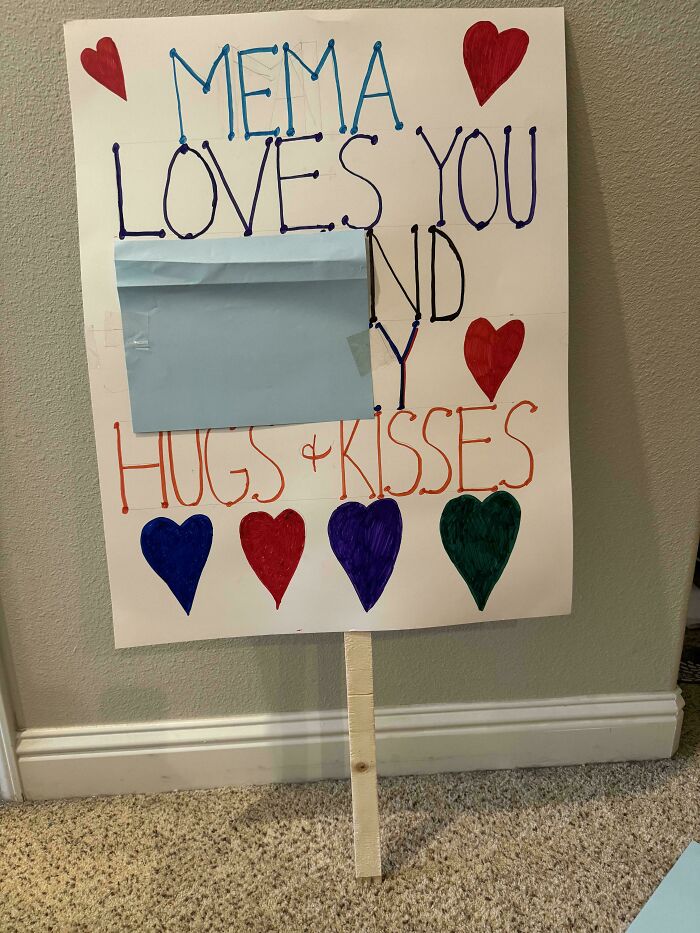 MEMA
LOVES YOU
ND
Y
HUGS & KISSES